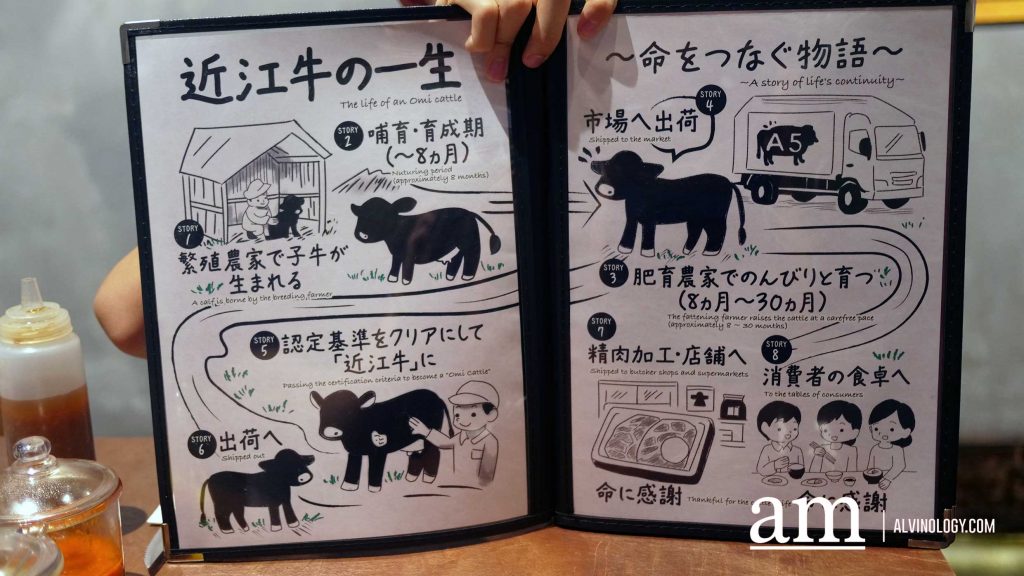 近江牛の一生
The life of an Omi cattle
STORY 1
繁殖農家で子牛が
生まれる
A calf is borne by the breeding farmer
STORY 2
哺育・育成期
(〜8ヵ月)
Nuturing period
(approximately 8 months)
STORY 5
認定基準をクリアにして
「近江牛」に
Passing the certification criteria to become a "Omi Cattle"
STORY 6
出荷へ
Shipped out
〜命をつなぐ物語〜
~A story of life's continuity~
STORY 4
市場へ出荷
Shipped to the market
A5
STORY 3
肥育農家でのんびりと育つ
(8ヵ月〜30ヵ月)
The fattening farmer raises the cattle at a carefree pace
(approximately 8 ~ 30 months)
STORY 7
精肉加工・店舗へ
Shipped to butcher shops and supermarkets
STORY 8
消費者の食卓へ
To the tables of consumers
命に感謝
Thankful for the
命に感謝
am
ALVINOLOGY.COM